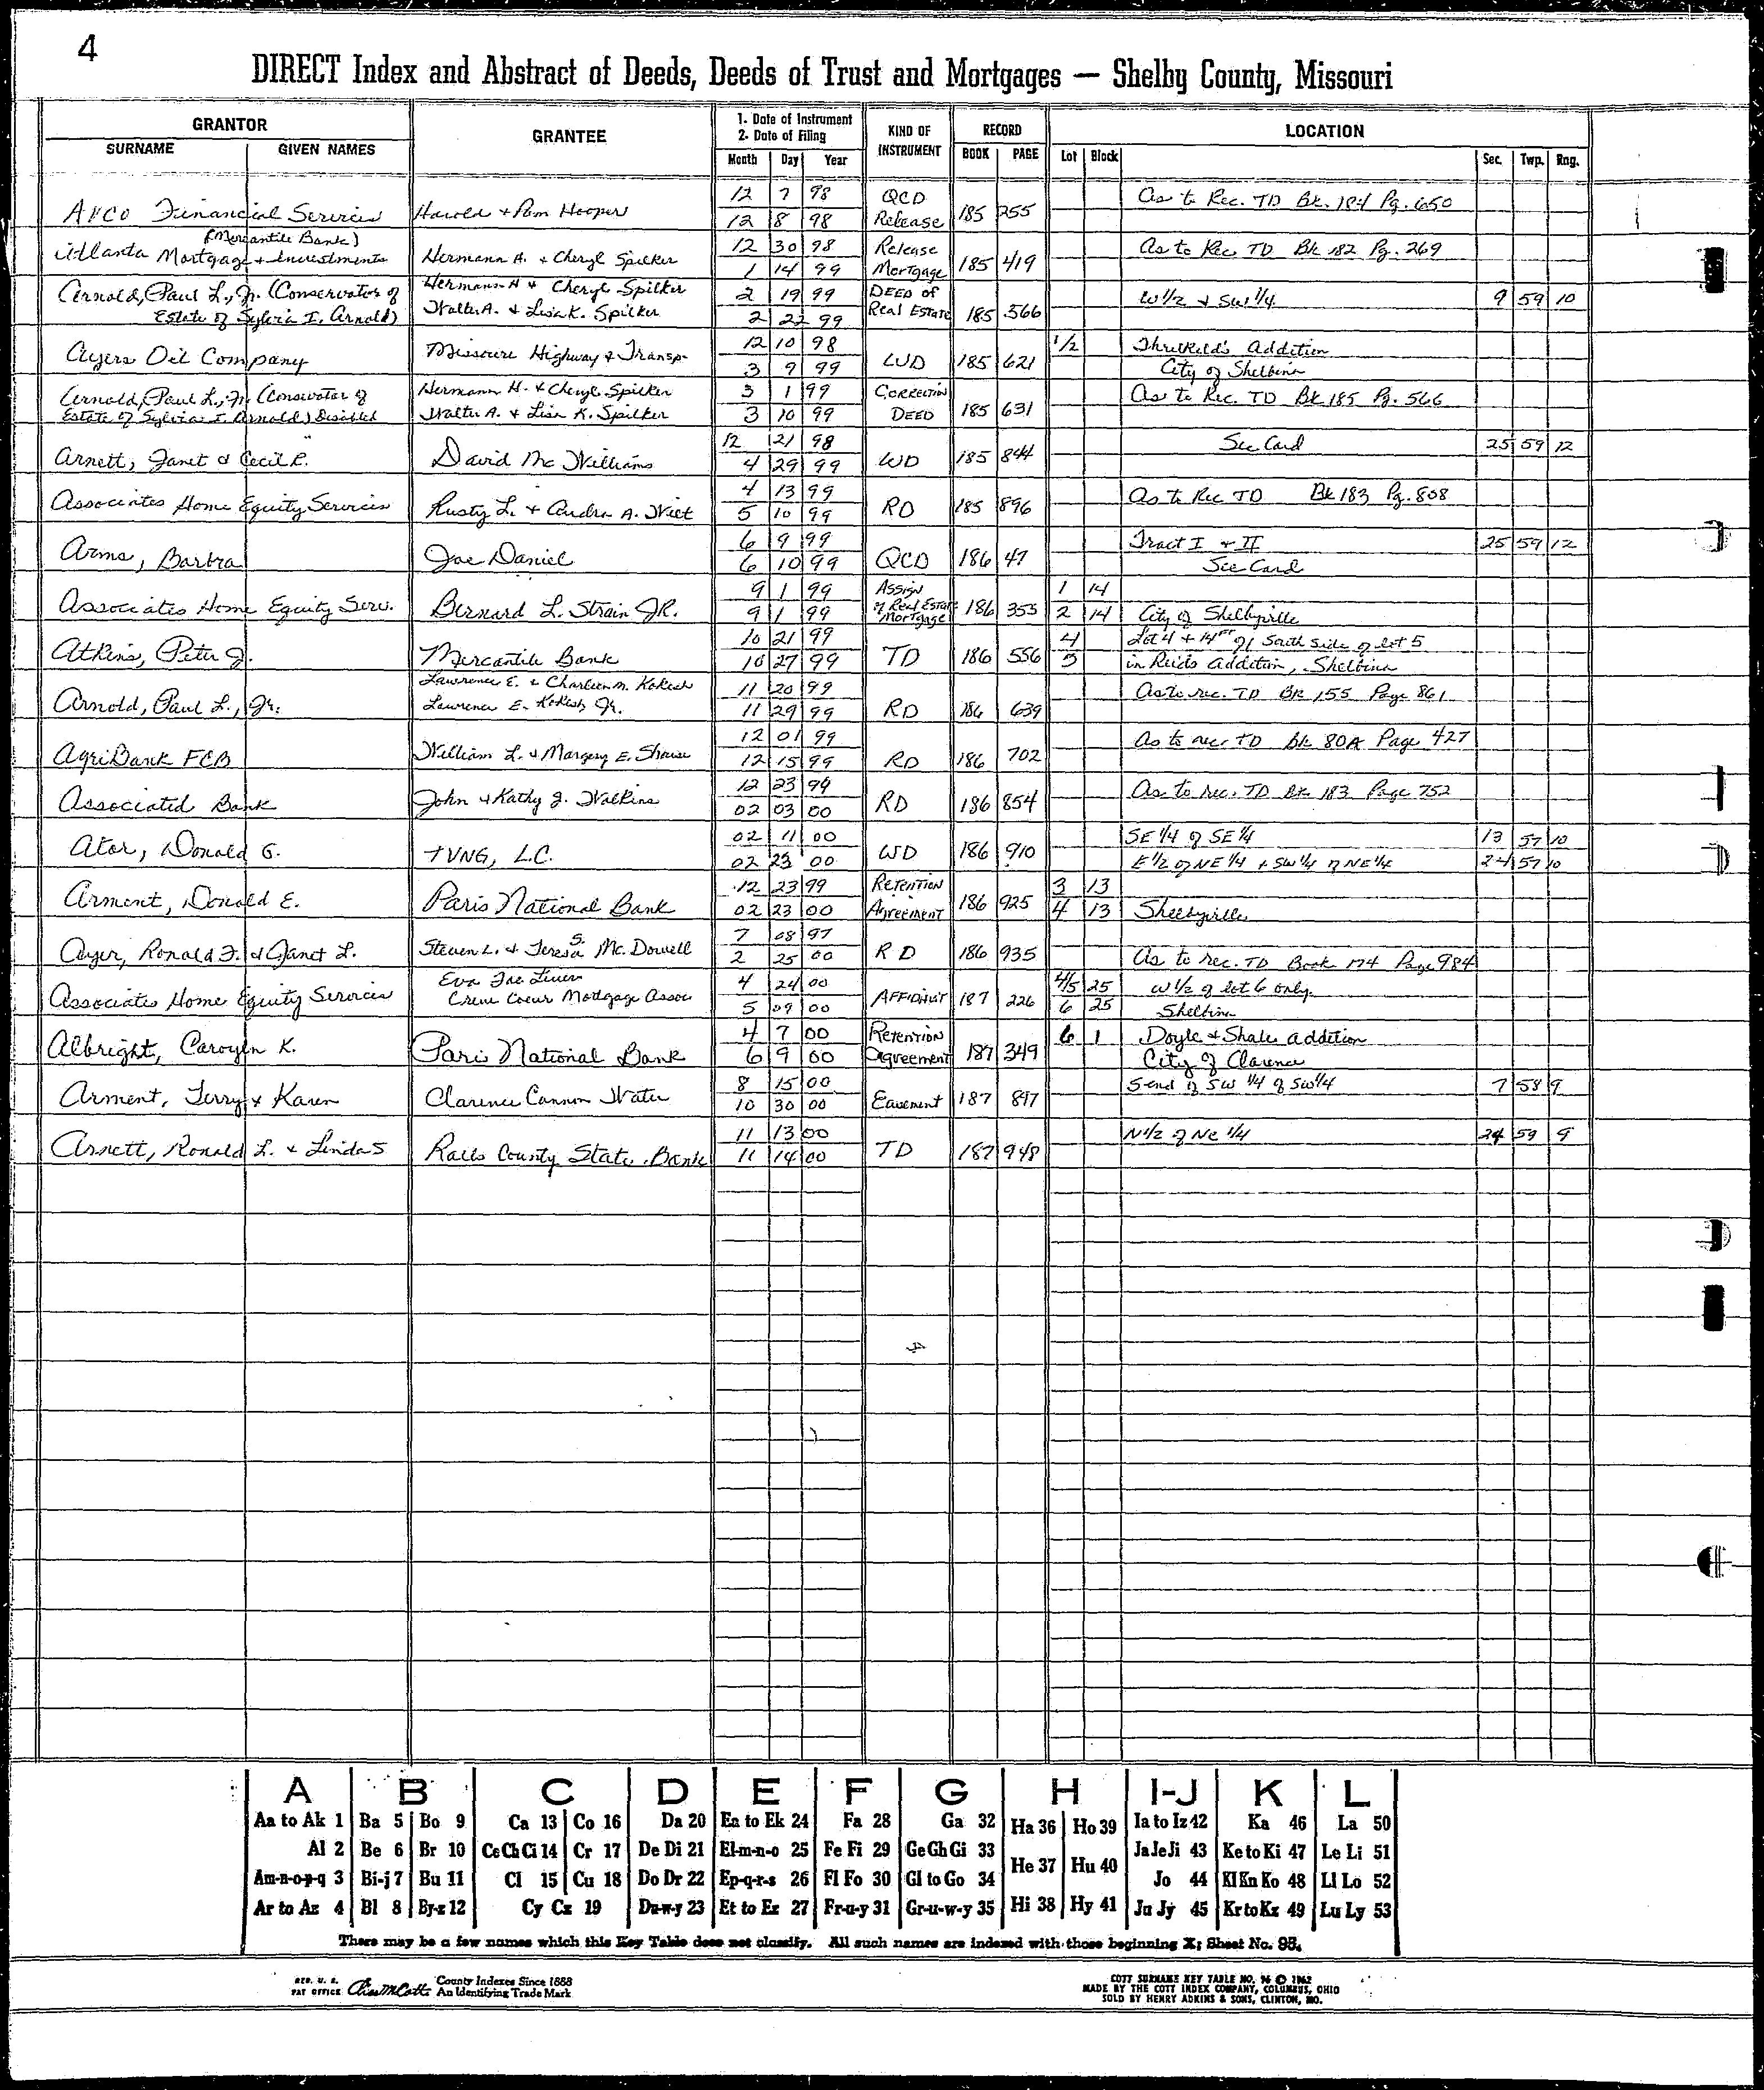 4
DIRECT Index and Abstract of Deeds, Deeds of Trust and Mortgages — Shelby County, Missouri
GRANTOR
SURNAME GIVEN NAMES
GRANTEE
1. Date of Instrument
2. Date of Filing
Month Day Year
KIND OF
INSTRUMENT
RECORD
BOOK PAGE
LOCATION
Lot Block Sec. Twp. Rng.
12 7 98 QCD As to Rec. TD Bk. 184 Pg. 650
AVCO Financial Services Harold + Pam Hooper 185 255
12 8 98 Release
(Mercantile Bank) 12 30 98 Release As to Rec TD Bk 182 Pg. 269
Atlanta Mortgage + Investments Hermann H. + Cheryl Spilker 185 419
1 14 99 Mortgage
Arnold, Paul L., Jr. (Conservator of Hermann H + Cheryl Spilker 2 19 99 DEED of W 1/2 + SW 1/4 9 59 10
Estate of Sylvia I. Arnold) Walter A. + Lisa K. Spilker 2 22 99 Real Estate 185 566
12 10 98 1/2 Threlkeld's Addition
Ayers Oil Company Missouri Highway & Transp. WD 185 621
3 9 99 City of Shelbina
Arnold, Paul L., Jr. (Conservator of Hermann H. + Cheryl Spilker 3 1 99 CORRECTION As to Rec. TD Bk 185 Pg. 566
Estate of Sylvia I. Arnold) Disabled Walter A. + Lisa K. Spilker 3 10 99 DEED 185 631
12 21 98 See Card 25 59 12
Arnett, Janet & Cecil R. David McWilliams 4 29 99 WD 185 844
4 13 99 As to Rec TD Bk 183 Pg. 808
Associates Home Equity Services Rusty L. + Andra A. Wiet 5 10 99 RD 185 896
6 9 99 Tract I + II 25 59 12
Arms, Barbra Joe Daniel 6 10 99 QCD 186 47 See Card
9 1 99 Assign 1 14
Associates Home Equity Serv. Bernard L. Strain JR. of Real Estate 186 353
9 1 99 Mortgage 2 14 City of Shelbyville
10 21 99 4 Lot 4 + 14 FT of South Side of lot 5
Atkins, Peter J. Mercantile Bank 10 27 99 TD 186 556 5 in Reids Addition, Shelbina
Lawrence E. + Charleen M. Kokesh 11 20 99 As to rec. TD BK 155 Page 861
Arnold, Paul L., Jr. Lawrence E. Kokesh Jr. 11 29 99 RD 186 639
12 01 99 As to rec. TD bk 80A Page 427
AgriBank FCB William L. + Margery E. Shouse 12 15 99 RD 186 702
12 23 99 As to rec. TD Bk 183 Page 752
Associated Bank John + Kathy J. Watkins 02 03 00 RD 186 854
02 11 00 SE 1/4 of SE 1/4 13 57 10
Ator, Donald G. TVNG, L.C. 02 23 00 WD 186 910 E 1/2 of NE 1/4 + SW 1/4 of NE 1/4 24 57 10
12 23 99 RETENTION 3 13
Arment, Donald E. Paris National Bank 02 23 00 Agreement 186 925 4 13 Shelbyville
7 08 97
Ayer, Ronald F. & Janet L. Steven L. + Teresa S. McDowell 2 25 00 RD 186 935 As to rec. TD Book 174 Page 984
Eva Jac Liner 4 24 00 4/5 25 W 1/2 of lot 6 only.
Associates Home Equity Services Creve Coeur Mortgage Assoc 5 09 00 AFFIDAVIT 187 226 6 25 Shelbina
4 7 00 Retention 6 1 Doyle + Shale addition
Albright, Caroyln K. Paris National Bank 6 9 00 Agreement 187 349 City of Clarence
8 15 00 S end of SW 1/4 of SW 1/4 7 58 9
Arment, Terry + Karen Clarence Cannon Water 10 30 00 Easement 187 897
11 13 00 N 1/2 of NE 1/4 24 59 9
Arnett, Ronald L. + Linda S Ralls County State Bank 11 14 00 TD 187 948
A B C D E F G H I-J K L
Aa to Ak 1 Ba 5 Bo 9 Ca 13 Co 16 Da 20 Ea to Ek 24 Fa 28 Ga 32 Ha 36 Ho 39 Ia to Iz 42 Ka 46 La 50
Al 2 Be 6 Br 10 Ce Ch Ci 14 Cr 17 De Di 21 El-m-n-o 25 Fe Fi 29 Ge Gh Gi 33 He 37 Hu 40 Ja Je Ji 43 Ke to Ki 47 Le Li 51
Am-n-o-p-q 3 Bi-j 7 Bu 11 Cl 15 Cu 18 Do Dr 22 Ep-q-r-s 26 Fl Fo 30 Gl to Go 34 Jo 44 Kl Kn Ko 48 Ll Lo 52
Ar to Az 4 Bl 8 By-z 12 Cy Cz 19 Du-w-y 23 Et to Ez 27 Fr-u-y 31 Gr-u-w-y 35 Hi 38 Hy 41 Ju Jy 45 Kr to Kz 49 Lu Ly 53
There may be a few names which this Key Table does not classify. All such names are indexed with those beginning X; Sheet No. 95.
REG. U. S. PAT OFFICE County Indexes Since 1888
An Identifying Trade Mark
COTT SURNAME KEY TABLE NO. 96 © 1962
MADE BY THE COTT INDEX COMPANY, COLUMBUS, OHIO
SOLD BY HENRY ADKINS & SONS, CLINTON, MO.